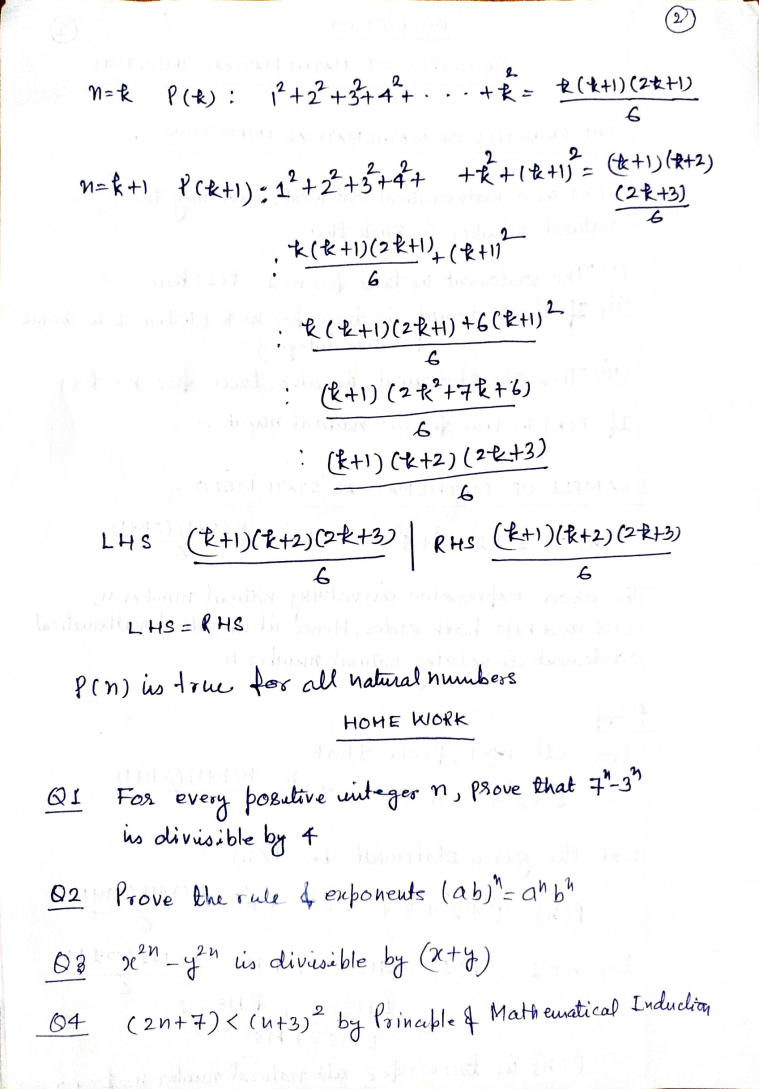 2
n=k P(k) : 1²+2²+3²+4²+ . . . +k² = k(k+1)(2k+1)/6
n=k+1 P(k+1) : 1²+2²+3²+4²+ +k²+(k+1)² = (k+1)(k+2)(2k+3)/6
: k(k+1)(2k+1)/6 + (k+1)²
: k(k+1)(2k+1)+6(k+1)²/6
: (k+1)(2k²+7k+6)/6
: (k+1)(k+2)(2k+3)/6
LHS (k+1)(k+2)(2k+3)/6 | RHS (k+1)(k+2)(2k+3)/6
LHS = RHS
P(n) is true for all natural numbers
HOME WORK
Q1 For every positive integer n, prove that 7ⁿ-3ⁿ
is divisible by 4
Q2 Prove the rule of exponents (ab)ⁿ = aⁿbⁿ
Q3 x²ⁿ - y²ⁿ is divisible by (x+y)
Q4 (2n+7) < (n+3)² by Principle of Mathematical Induction